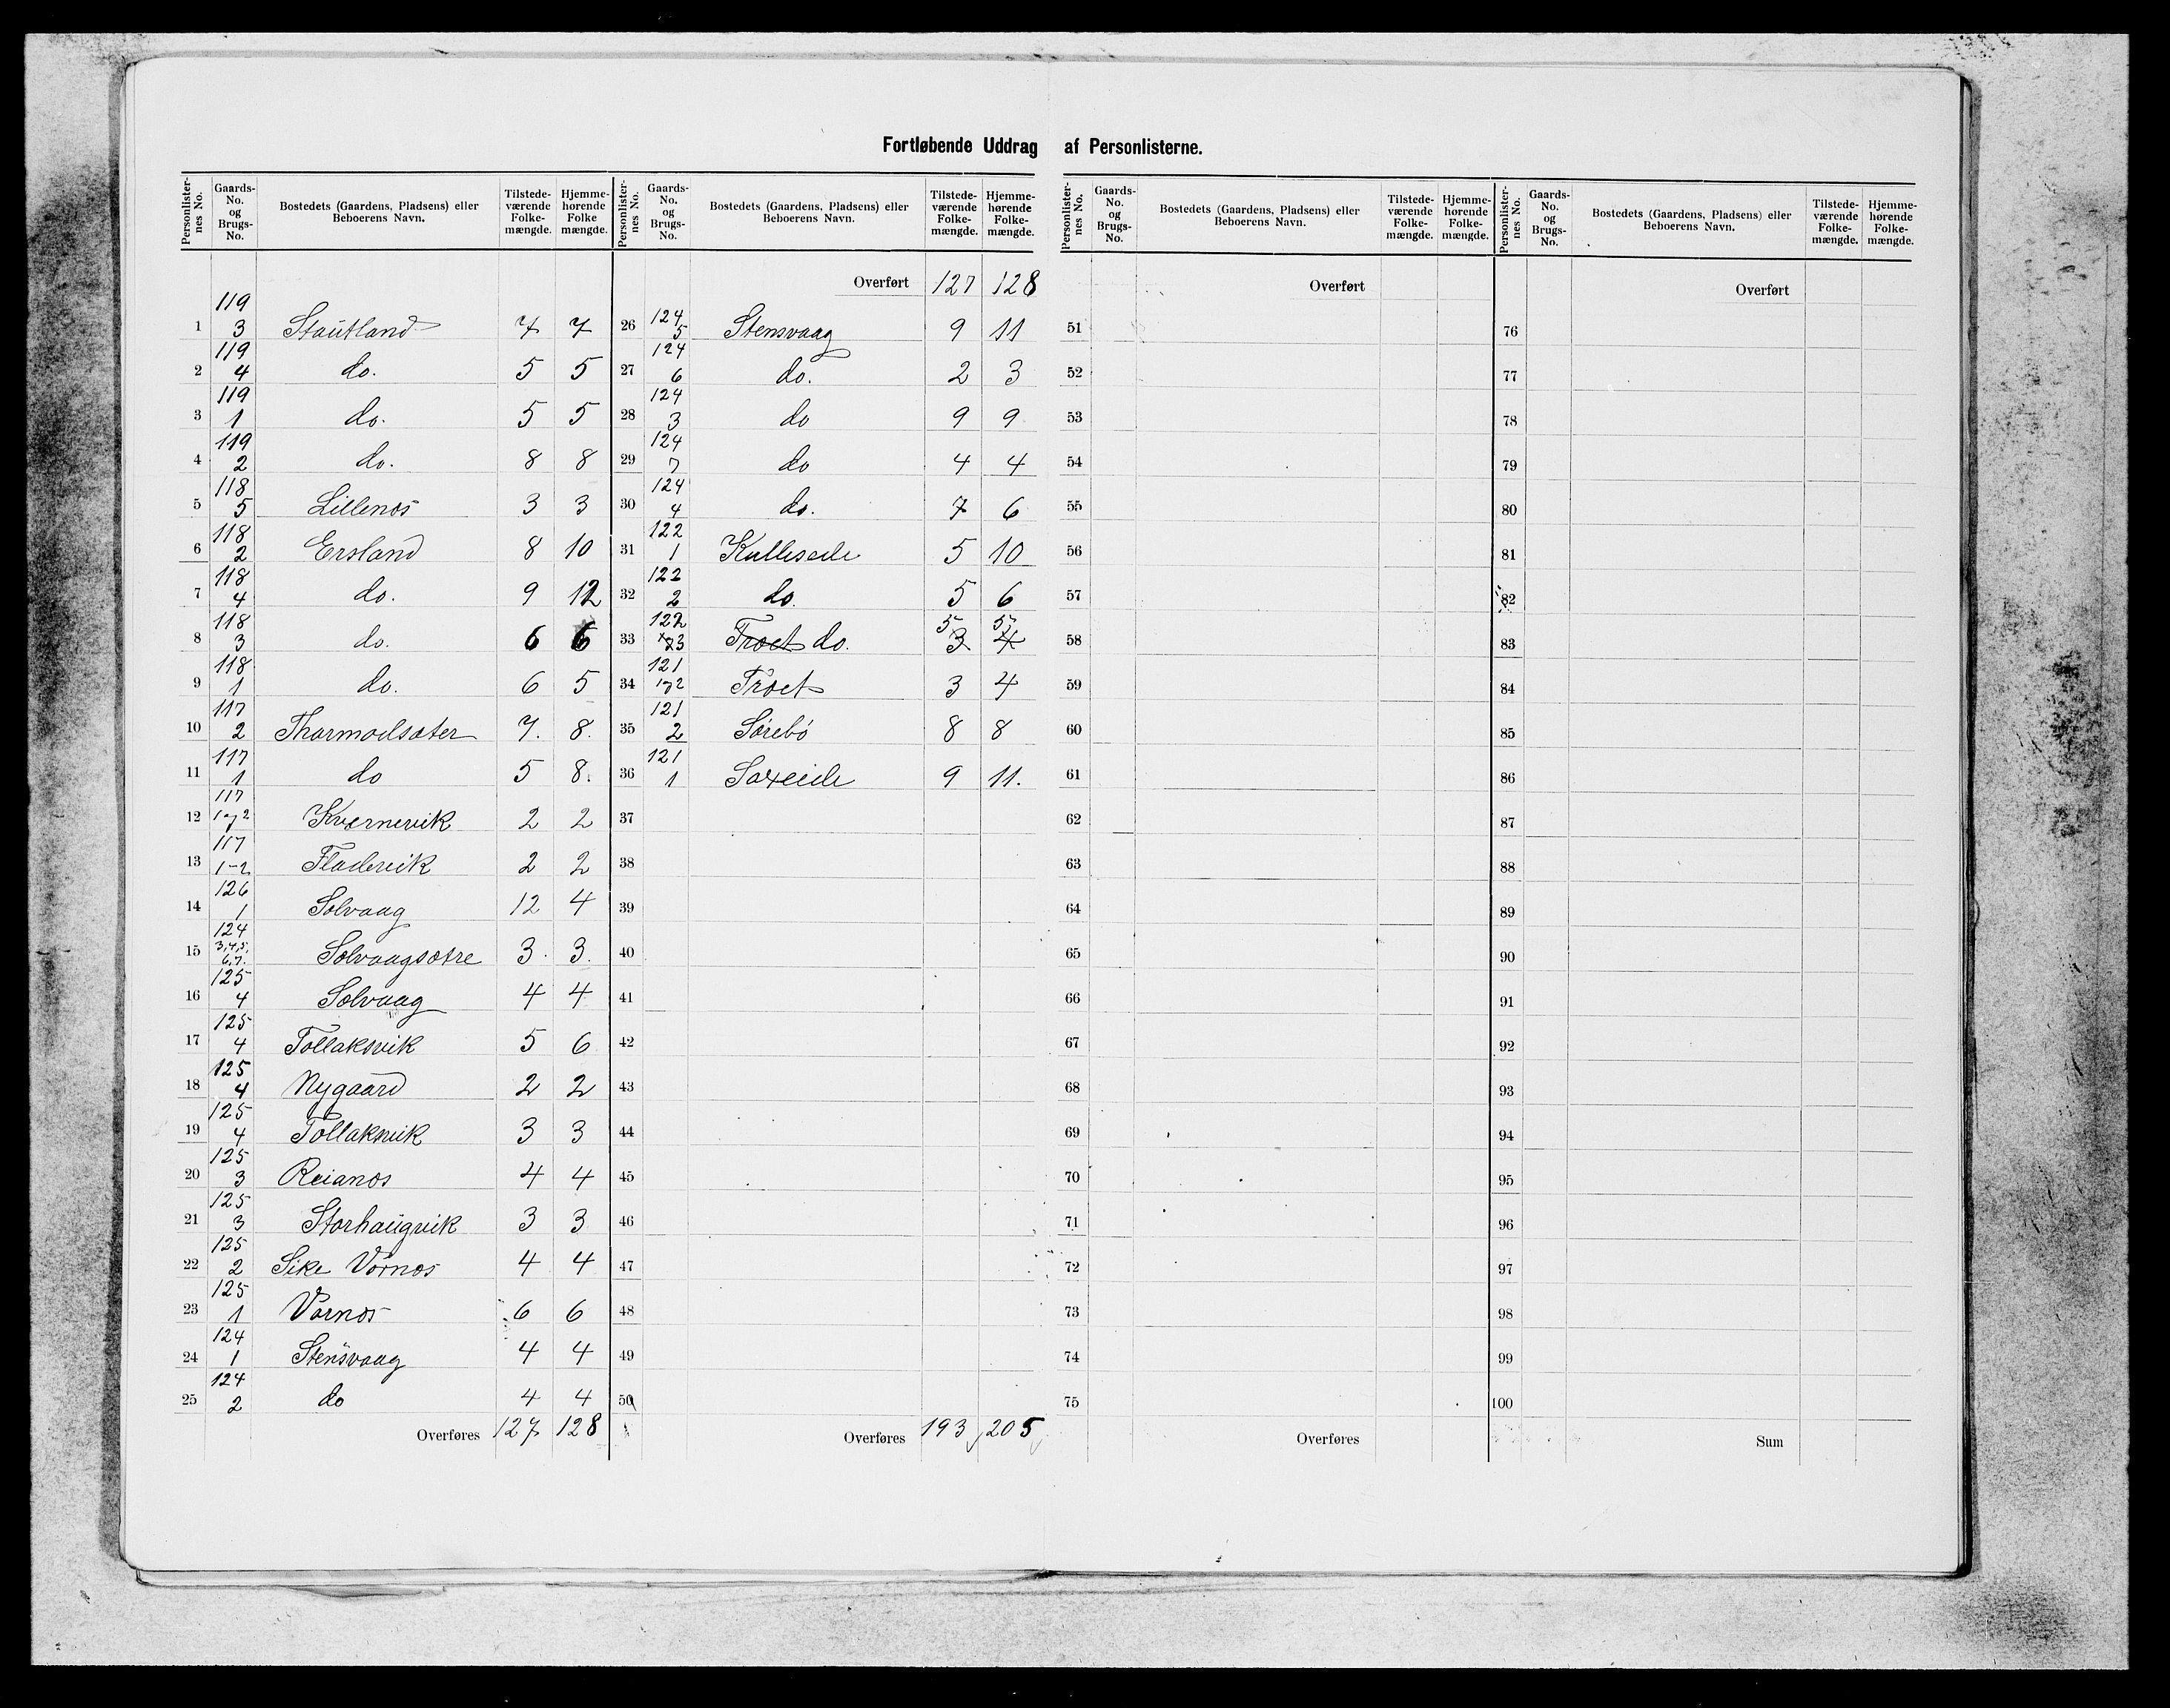 Fortløbende Uddrag af Personlisterne.
Personlisternes No. Gaards-No. og Brugs-No. Bostedets (Gaardens, Pladsens) eller Beboerens Navn. Tilstedeværende Folkemængde. Hjemmehørende Folke mængde.
1 119 3 Stautland 7 7
2 119 4 do. 5 5
3 119 1 do. 5 5
4 119 2 do. 8 8
5 118 5 Lillenøs 3 3
6 118 2 Ersland 8 10
7 118 4 do. 9 12
8 118 3 do. 6 6
9 118 1 do. 6 5
10 117 2 Thormodsæter 7. 8.
11 117 1 do 5 8.
12 117 1 og 2 Kværnevik 2 2
13 117 1-2 Fladevik 2 2
14 126 1 Solvaag 12 4
15 124 3,4,5, 6,7. Solvaagsætre 3. 3.
16 125 4 Solvaag 4 4
17 125 4 Tollaksvik 5 6
18 125 4 Nygaard 2 2
19 125 4 Tollaksvik 3 3
20 125 3 Reianøs 4 4
21 125 3 Storhaugvik 3 3
22 125 2 Sike Vornøs 4 4
23 125 1 Vornøs 6 6
24 124 1 Stensvaag 4 4
25 124 2 do 4 4
Overføres 127 128
Personlisternes No. Gaards-No. og Brugs-No. Bostedets (Gaardens, Pladsens) eller Beboerens Navn. Tilstedeværende Folkemængde. Hjemmehørende Folkemængde.
Overført 127 128
26 124 5 Stensvaag 9 11
27 124 6 do. 2 3
28 124 3 do 9 9
29 124 7 do 4 4
30 124 4 do. 7 6
31 122 1 Kulleseide 5 10
32 122 2 do. 5 6
33 122 3 Troet do. 5 3 5 4
34 121 1 og 2 Troet 3 4
35 121 2 Sørebø 8 8
36 121 1 Saxeide 9 11.
37
38
39
40
41
42
43
44
45
46
47
48
49
50
Overføres 193 205
Personlisternes No. Gaards-No. og Brugs-No. Bostedets (Gaardens, Pladsens) eller Beboerens Navn. Tilstedeværende Folkemængde. Hjemmehørende Folkemængde.
Overført
51
52
53
54
55
56
57
58
59
60
61
62
63
64
65
66
67
68
69
70
71
72
73
74
75
Overføres
Personlisternes No. Gaards-No. og Brugs-No. Bostedets (Gaardens, Pladsens) eller Beboerens Navn. Tilstedeværende Folkemængde. Hjemmehørende Folkemængde.
Overført
76
77
78
79
80
81
82
83
84
85
86
87
88
89
90
91
92
93
94
95
96
97
98
99
100
Sum